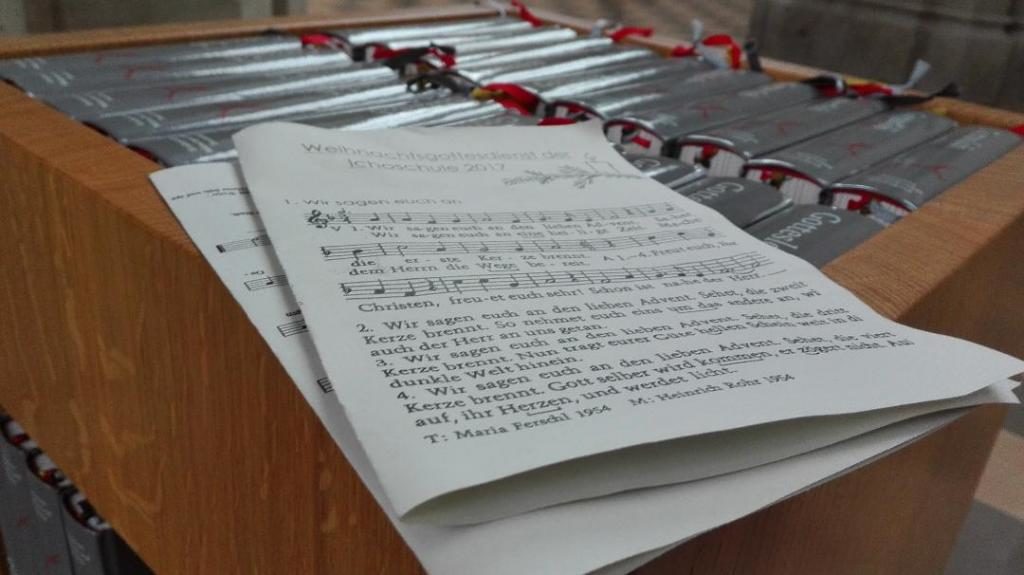 Weihnachtsgottesdienst der
Ichoschule 2017
1. Wir sagen euch an
V 1. Wir sa-gen euch an den lieben Ad-vent.
Wir sa-gen euch an eine heil-ge Zeit.
die er-ste Ker-ze brennt. A 1.–4. Freut euch, ihr
dem Herrn die Wege be-reit.
Christen, freu-et euch sehr! Schon ist na-he der Herr.
2. Wir sagen euch an den lieben Advent. Sehet, die zweit
Kerze brennt. So nehmet euch eins um das andere an, wi
auch der Herr an uns getan.
3. Wir sagen euch an den lieben Advent. Sehet, die dritt
Kerze brennt. Nun tragt eurer Güte hellen Schein weit in di
dunkle Welt hinein.
4. Wir sagen euch an den lieben Advent. Sehet, die viert
Kerze brennt. Gott selber wird kommen, er zögert nicht. Auf
auf, ihr Herzen, und werdet licht.
T: Maria Ferschl 1954 M: Heinrich Rohr 1954